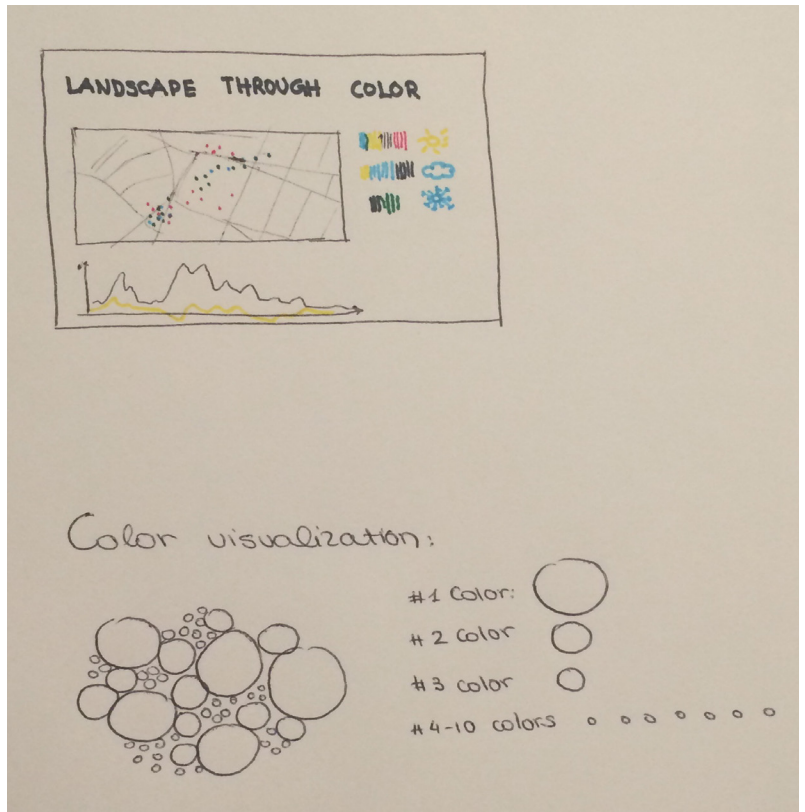 LANDSCAPE THROUGH COLOR
Color visualization:
#1 Color:
#2 color
#3 color
#4-10 colors